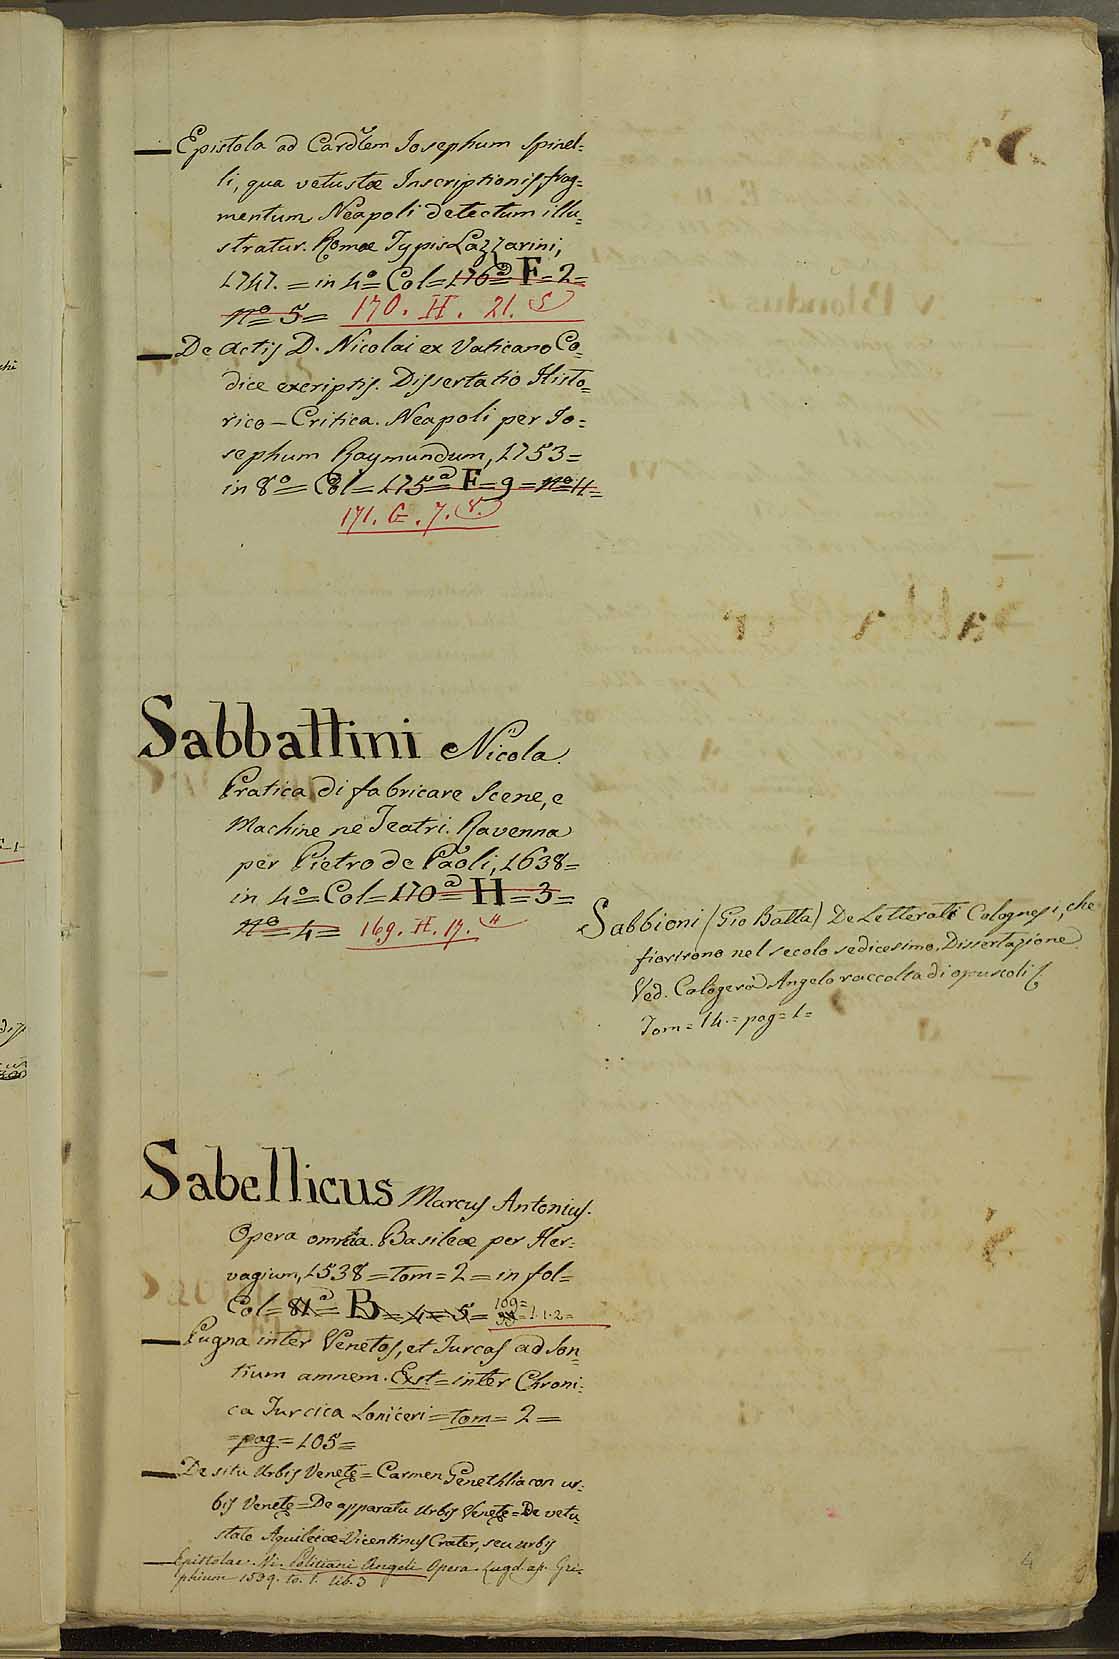 — Epistola ad Cardlem Iosephum Spinel=
li, qua vetustæ Inscriptionis frag=
mentum Neapoli detectum illu=
stratur. Romæ Typis Lazzarini,
1747. = in 4º = Col = 176ª = F = 2 =
nº = 5 = 170. H. 21. (5)
— De Actis D. Nicolai ex Vaticano Co=
dice excriptis. Dissertatio Histo=
rico-Critica. Neapoli per Io=
sephum Raymundum, 1753 =
in 8º = Col = 175ª = F = 9 = nº 11 =
171. G. 7. (8.)
Sabbattini Nicola.
Pratica di fabricare Scene, e
Machine ne Teatri. Ravenna
per Pietro de Paoli, 1638 =
in 4º = Col = 170ª = H = 3 =
nº = 4 = 169. H. 17.
Sabbioni (Gio Batta) De Letterati Colognesi, che
fiorirono nel secolo sedicesimo. Dissertazione
Ved. Calogerà Angelo raccolta di opuscoli
Tom = 14. = pag = 1 =
Sabellicus Marcus Antonius.
Opera omnia. Basileæ per Her=
vagium, 1538 = Tom = 2 = in fol =
Col = 81ª = B = 4 = 5 = 109 = 1. 1. 2 =
— Pugna inter Venetos, et Turcas ad Son=
tium amnem. Exst = inter Chroni=
ca Turcica Loniceri = tom = 2 =
= pag = 105 =
— De situ Urbis Venetę = Carmen Genethliacon ur=
bis Venetę = De apparatu Urbis Venetę = De vetu=
state Aquileiæ Vicentinus Crater, seu urbis
— Epistolae. Vi. Politiani Angeli Opera. Lugd. ap. Gri=
phium 1539. to. 1. lib. 3
4